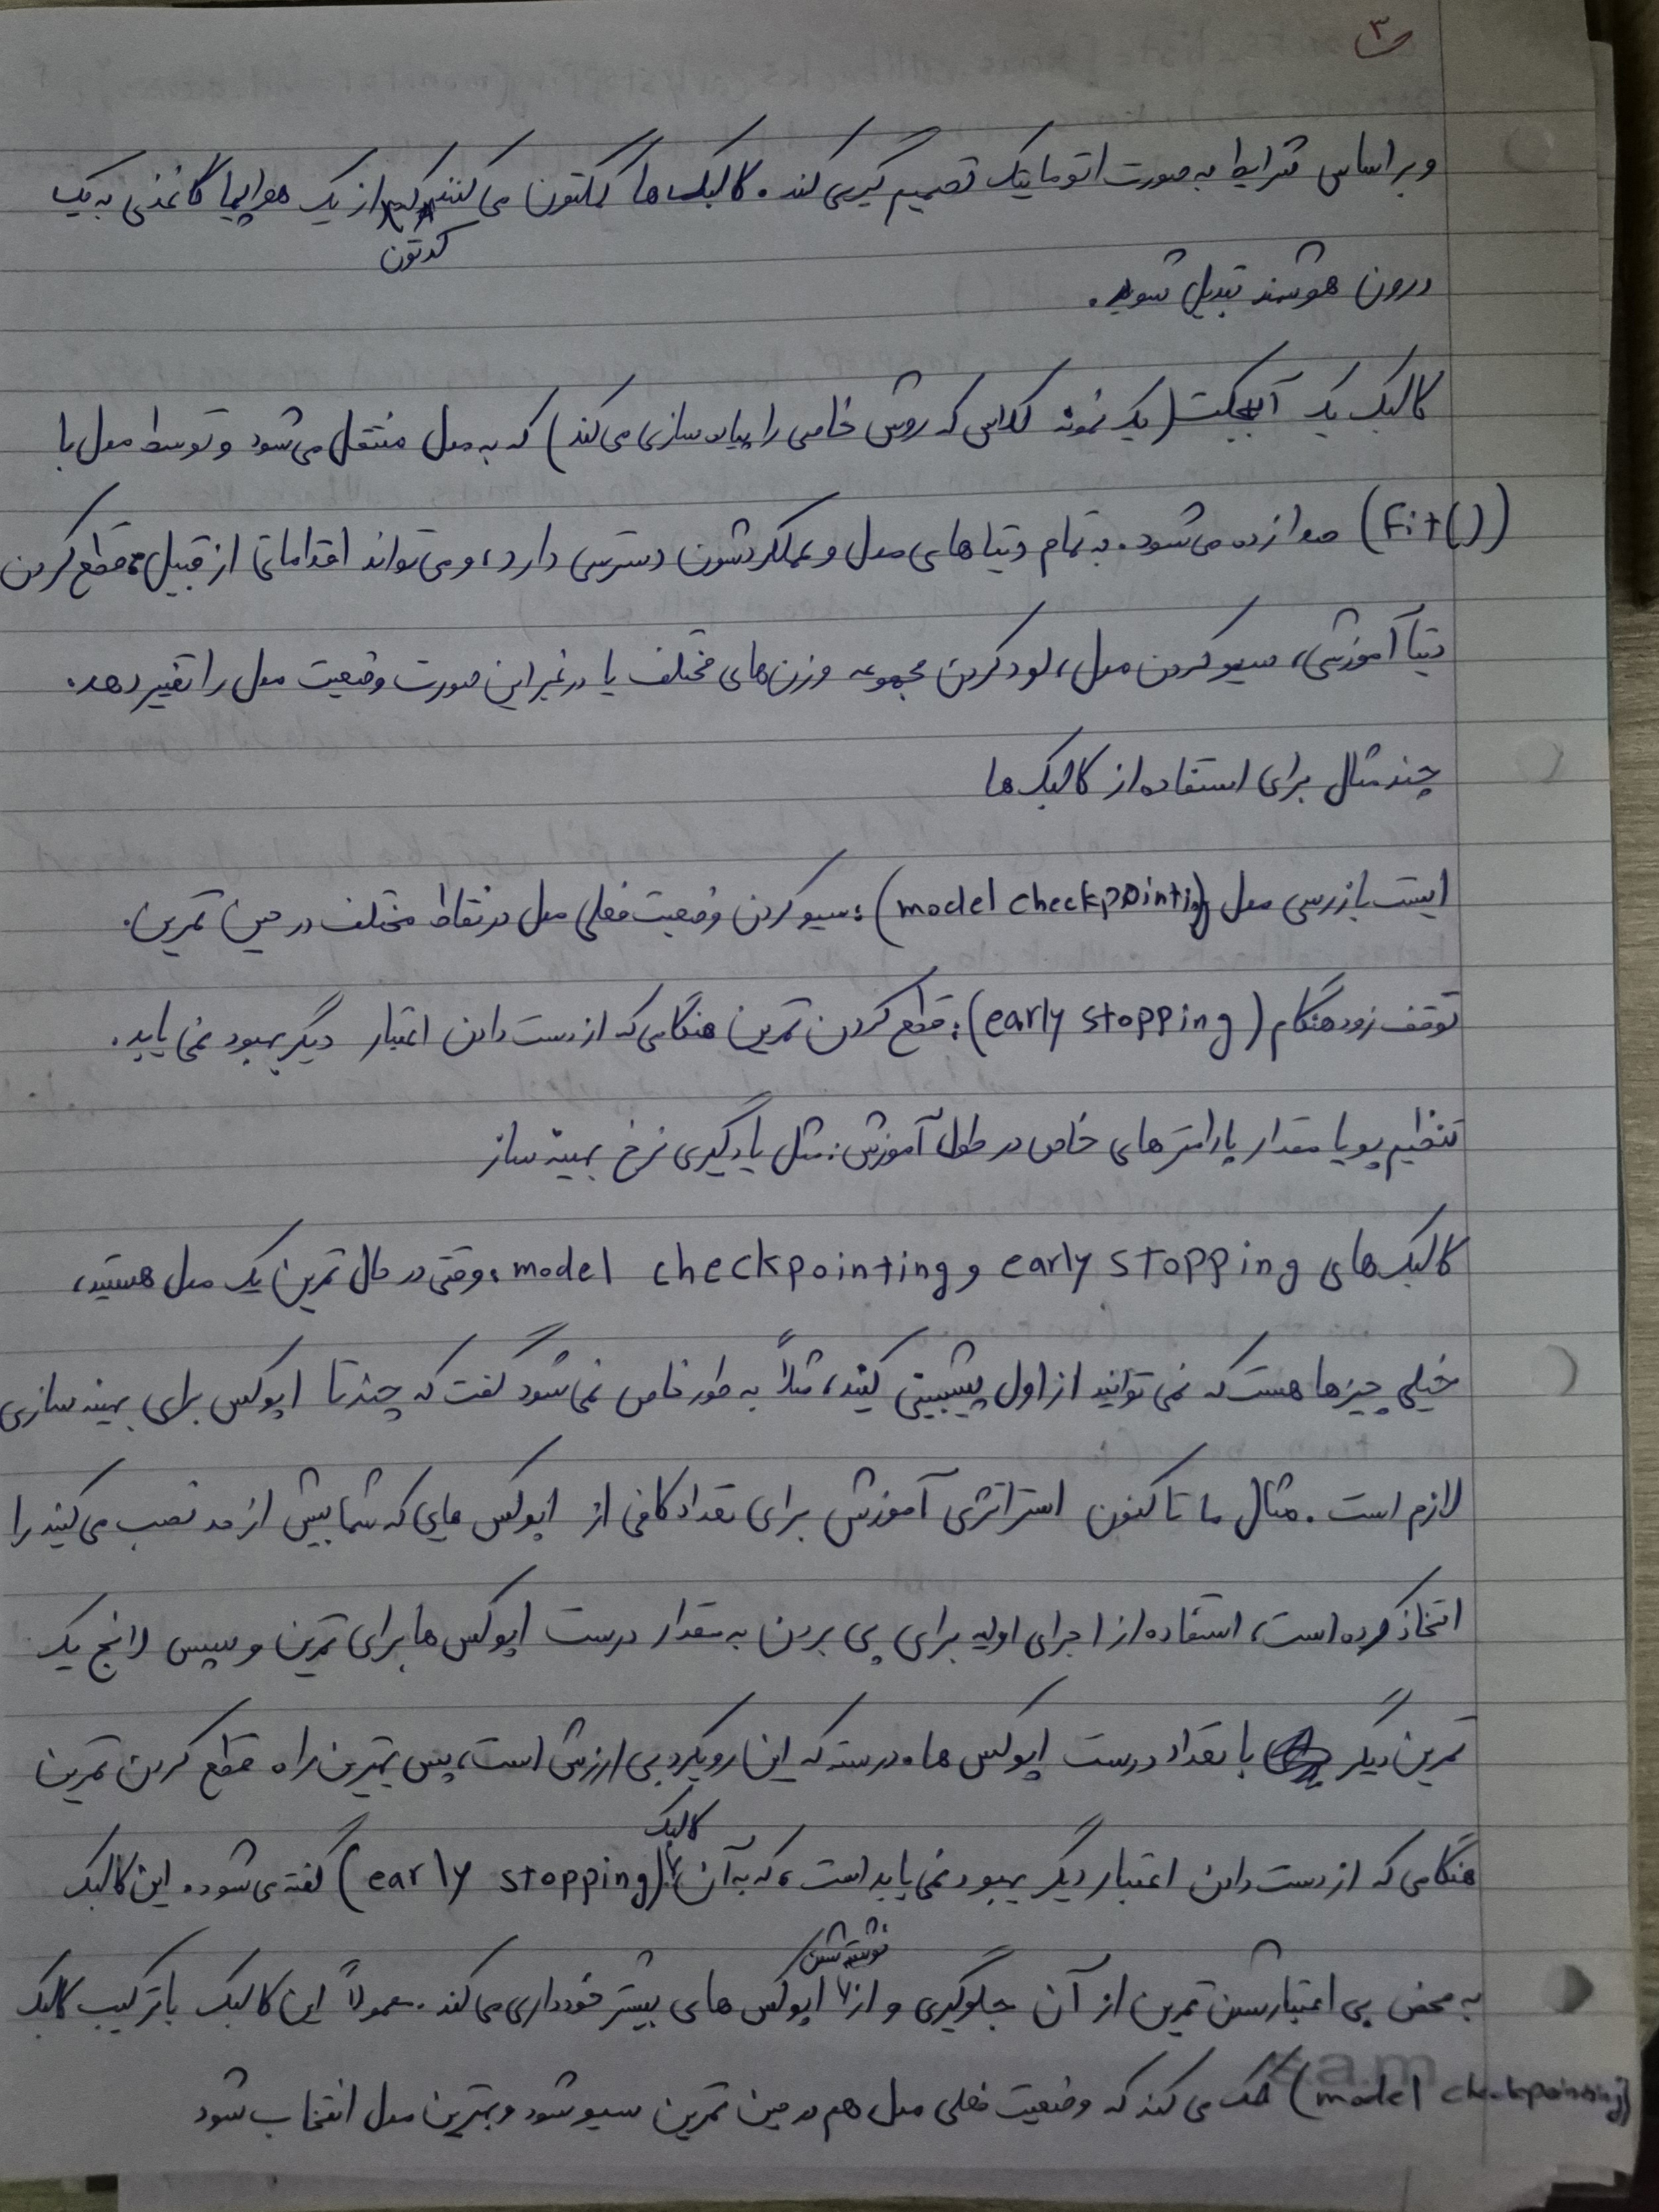 ۳
وبراساس شرایط به صورت اتوماتیک تصمیم گیری کند. کالبک ها کمکتون می کنند که از یک هواپیما کاغذی به یک
کدتون
درون هوشمند تبدیل شود.
کالبک یک آبجکت (یک نمونه کلاس که روش خاصی را پیاده سازی می کند) که به مدل منتقل می شود و توسط مدل با
(Fit()) صدا زده می شود. به تمام دیتاهای مدل و عملکردشون دسترسی دارد، و می تواند اقداماتی از قبیل: قطع کردن
دیتا آموزشی، سیو کردن مدل، لود کردن مجموعه وزن های مختلف یا در غیر این صورت وضعیت مدل را تغییر دهد.
چند مثال برای استفاده از کالبک ها
ایست بازرسی مدل (model checkpointing): سیو کردن وضعیت فعلی مدل در نقاط مختلف در حین تمرین.
توقف زودهنگام (early stopping): قطع کردن تمرین هنگامی که از دست دادن اعتبار دیگر بهبود نمی یابد.
تنظیم پویا مقدار پارامترهای خاص در طول آموزش: مثل یادگیری نرخ بهینه ساز
کالبک های early stopping و model checkpointing: وقتی در حال تمرین یک مدل هستید،
خیلی چیزها هست که نمی توانید از اول پیشبینی کنید، مثلاً به طور خاص نمی شود گفت که چند تا اپوکس برای بهینه سازی
لازم است. مثال ما تا کنون استراتژی آموزش برای تعداد کافی از اپوکس هایی که شما بیش از حد نصب می کنید را
اتخاذ کرده است، استفاده از اجرای اولیه برای پی بردن به مقدار درست اپوکس ها برای تمرین و سپس لانج یک
تمرین دیگر با تعداد درست اپوکس ها. درسته که این رویکرد بی ارزش است، پس بهترین راه قطع کردن تمرین
کالبک
هنگامی که از دست دادن اعتبار دیگر بهبود نمی یابد است، که به آن (early stopping) گفته می شود. این کالبک
نوشته شدن
به محض بی اعتبار شدن تمرین از آن جلوگیری و از اپوکس های بیشتر خودداری می کند. معمولاً این کالبک با ترکیب کالبک
(model checkpointing) کمک می کند که وضعیت فعلی مدل هم در حین تمرین سیو شود و بهترین مدل انتخاب شود